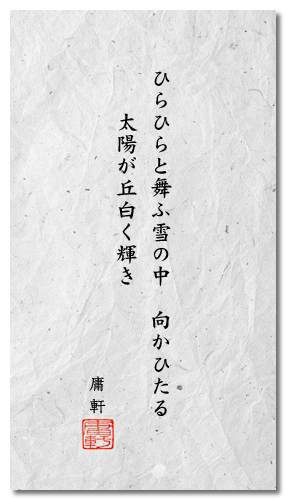 ひらひらと舞ふ雪の中　向かひたる
太陽が丘白く輝き
庸軒
庸軒